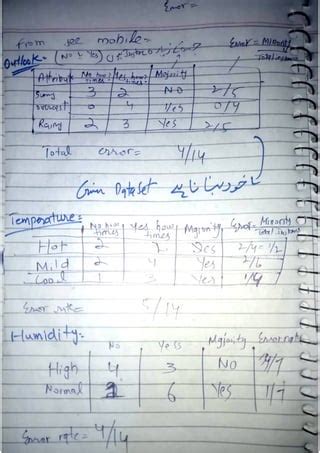 Error =
From see mobile =
Outlook = (No & Yes) Error = Minority / Total instances
Attribute No how times Yes how times Majority
Sunny 3 2 NO 2/5
overcast 0 4 Yes 0/4
Rainy 2 3 Yes 2/5
Total error = 4/14
Given Dataset
Temperature =
No how times Yes how times Majority Error = Minority / total instan
Hot 2 2 Yes 2/4 = 1/2
Mild 2 4 Yes 2/6
Cool 1 3 Yes 1/4
Error rate = 5/14
Humidity =
No Yes Majority Error rate
High 4 3 NO 3/7
Normal 1 6 Yes 1/7
Error rate = 4/14